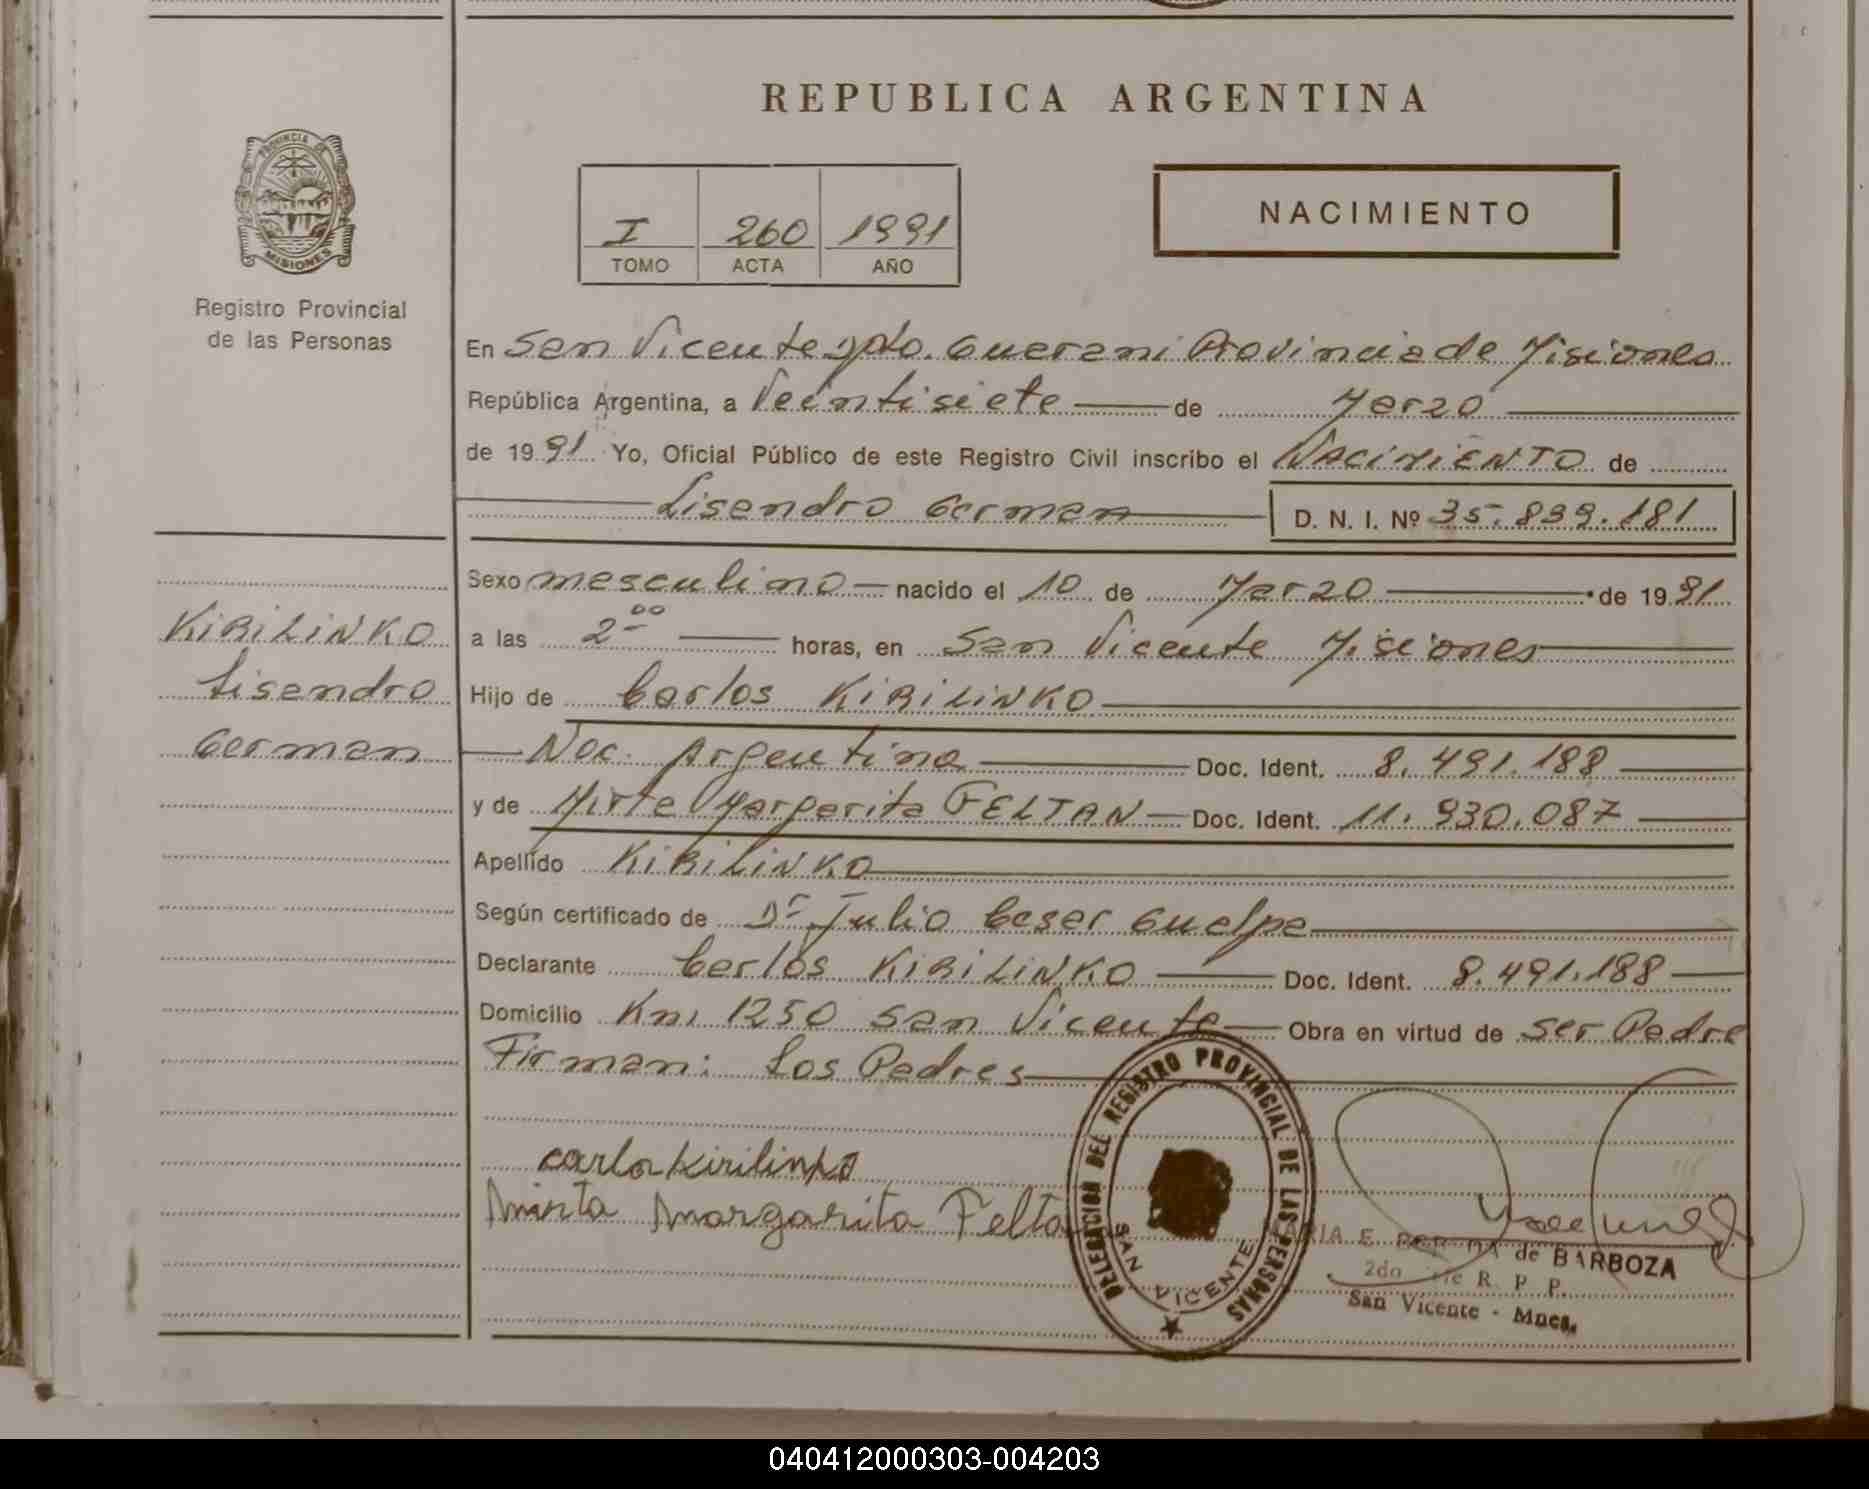 REPUBLICA ARGENTINA
PROVINCIA DE
MISIONES
Registro Provincial
de las Personas
I 260 1991
TOMO ACTA AÑO
NACIMIENTO
En San Vicente Dpto. Guarani Provincia de Misiones
República Argentina, a Veintisiete de Marzo
de 1991 Yo, Oficial Público de este Registro Civil inscribo el NACIMIENTO de
Lisandro German D. N. I. Nº 35.839.181
KIRILINKO
Lisandro
German
Sexo masculino nacido el 10 de Marzo de 1991
a las 2 00 horas, en San Vicente Misiones
Hijo de Carlos KIRILINKO
Nac. Argentina Doc. Ident. 8.491.188
y de Mirta Margarita FELTAN Doc. Ident. 11.930.087
Apellido KIRILINKO
Según certificado de Dr Julio Cesar Guelpa
Declarante Carlos KIRILINKO Doc. Ident. 8.491.188
Domicilio Km 1250 San Vicente Obra en virtud de Ser Padre
Firman: Los Padres
carlos kirilinko
Mirta Margarita Felta
DELEGACION DEL REGISTRO PROVINCIAL DE LAS PERSONAS
SAN VICENTE
MARIA E. de BARBOZA
2do R. P. P.
San Vicente - Mnes.
040412000303-004203